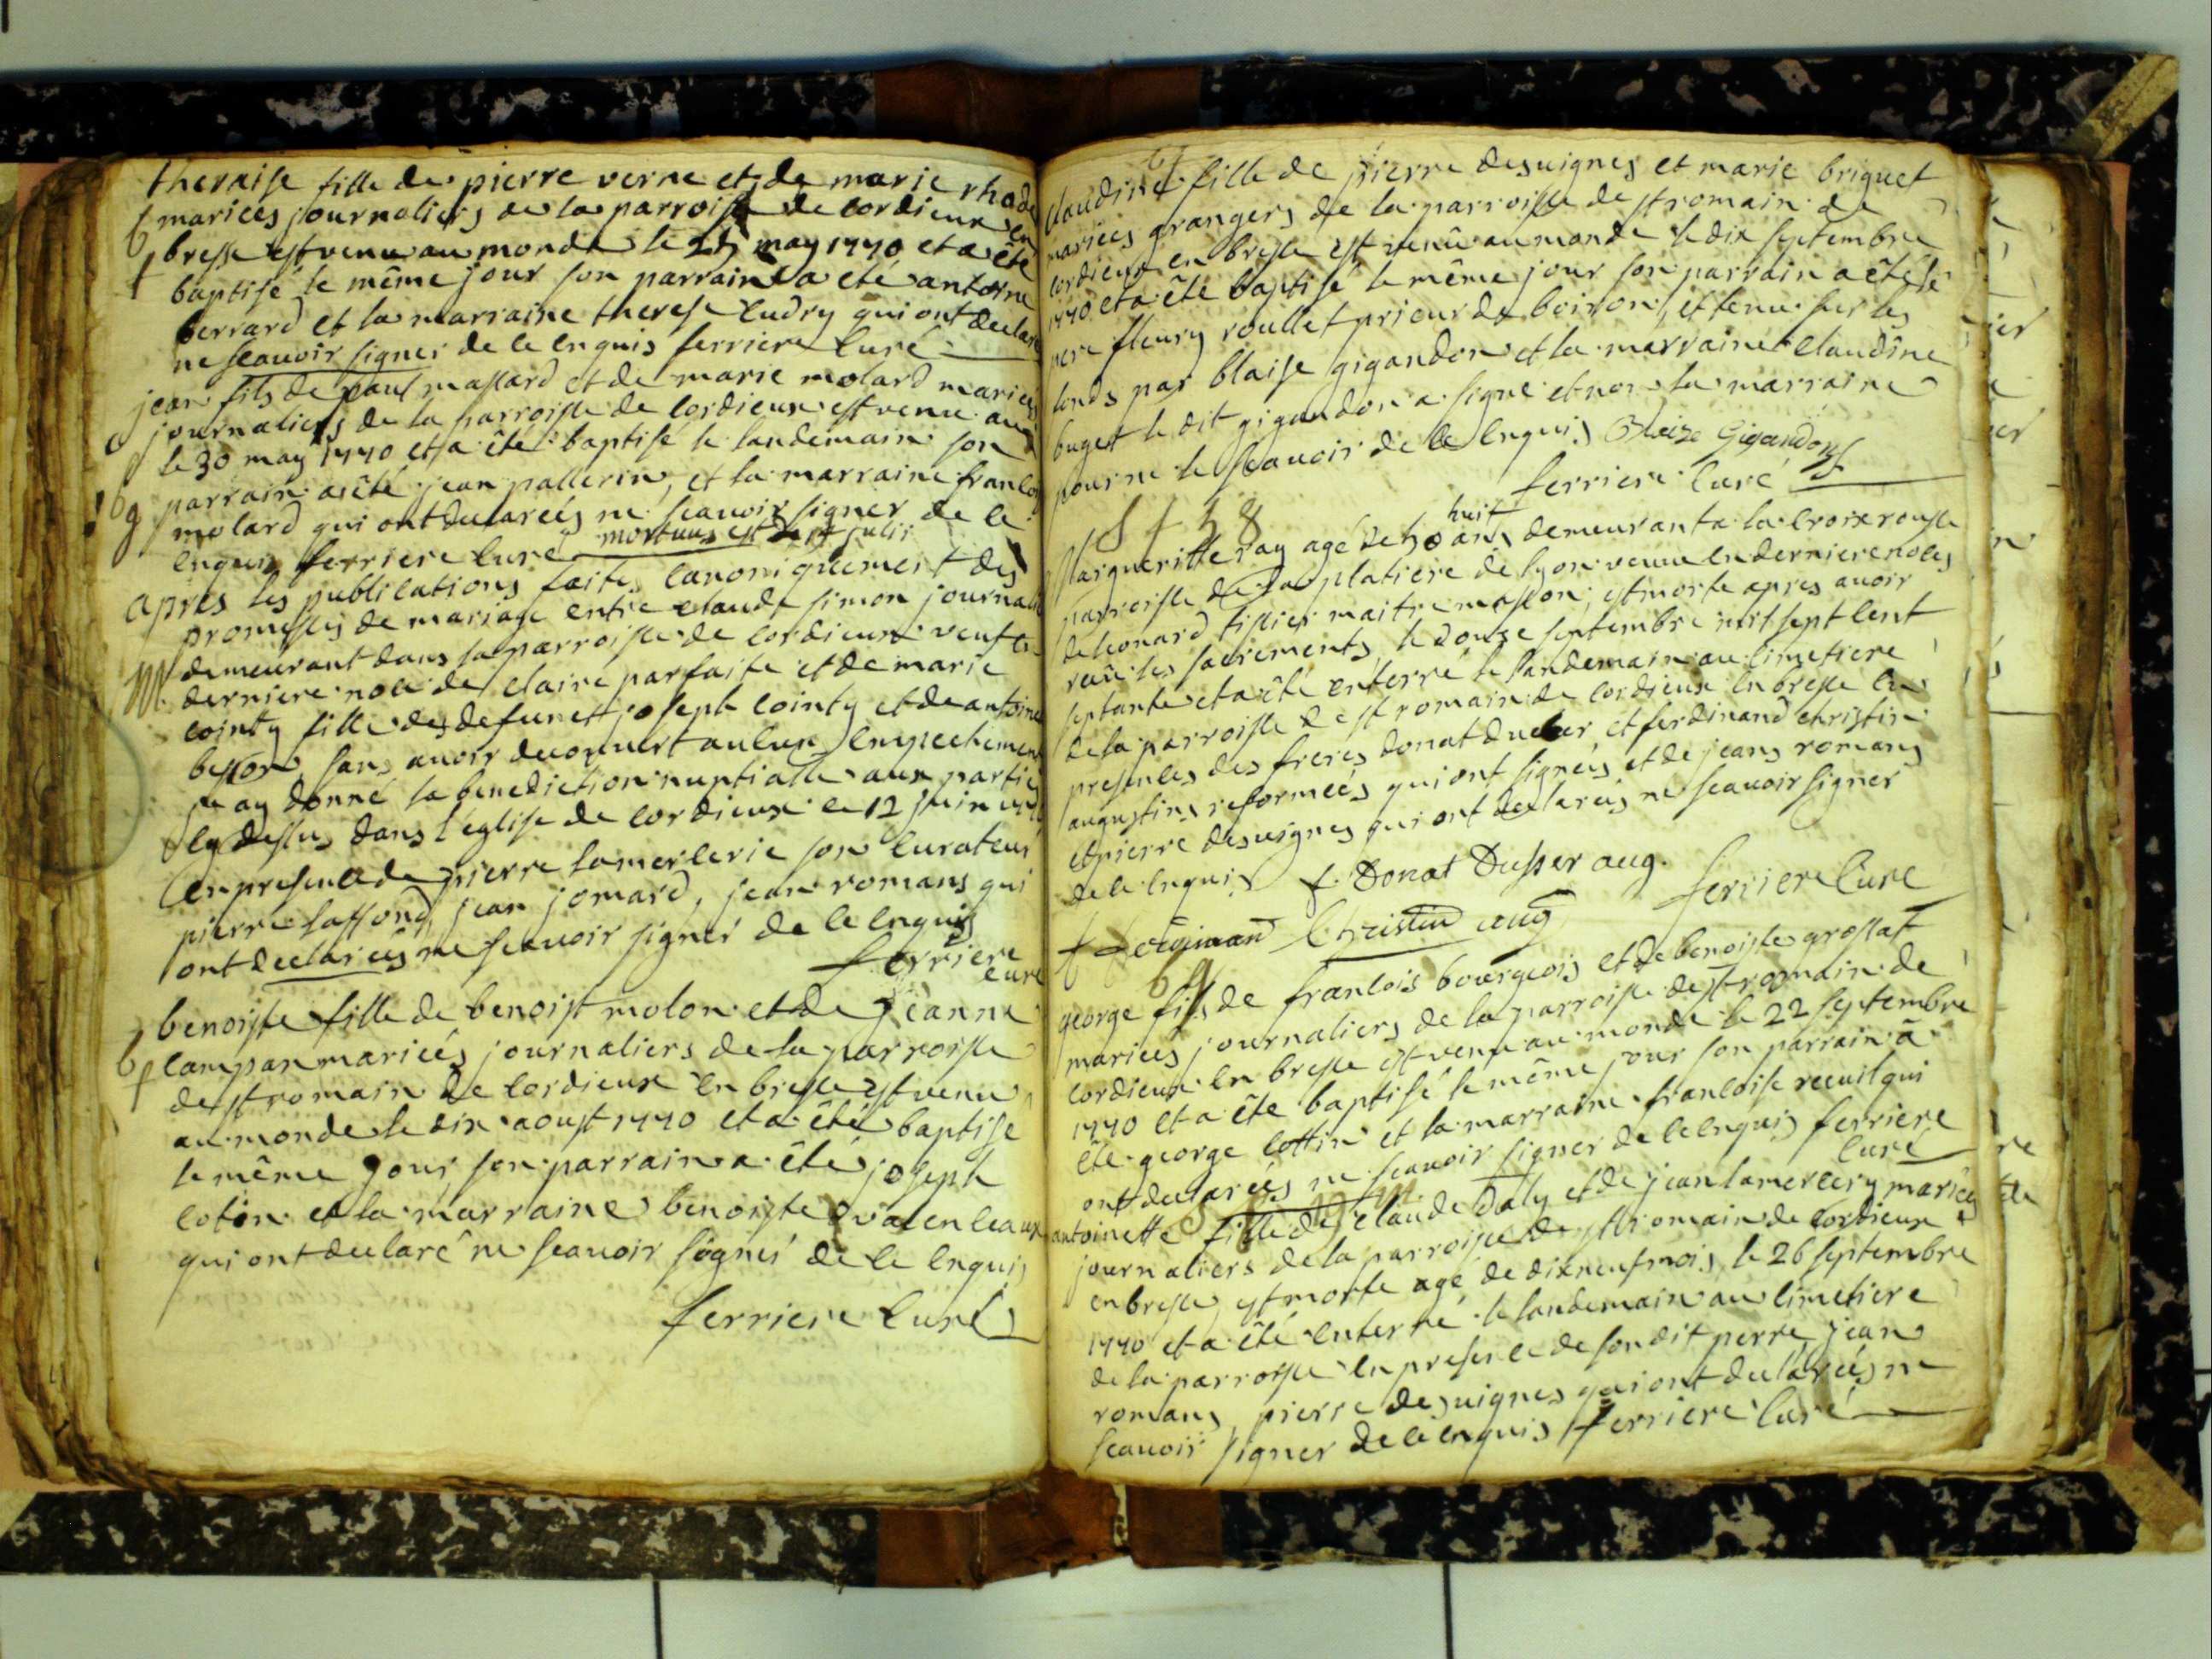 theraise fille de pierre verne et de marie rhode
mariees journaliers de la parroisse de cordieux en
bf bresse est venu au monde le 25 may 1770 et a êté
baptisé le même jour son parrain a eté antoine
berrard et la marraine therese ludry qui ont declaré
ne scauoir signer de ce enquis ferriere curé
jean fils de paul massard et de marie molard mariees
journaliers de la parroisse de cordieux est venu au
le 30 may 1770 et a êté baptise le landemain son
bg parrain a êté jean pallerin, et la marraine francoi
molard qui ont declareés ne scauoir signer de ce
enquis ferriere curé mortuus est julii
apres les publications faites canoniquement des
promesses de mariage entre claude simon journal
M demeurant dans la parroisse de cordieux veuf en
derniere noce de claire parfaite et de marie
cointy fille des defunct joseph cointy et de antoine
besson, sans auoir decouuert aucun empechement
je ay donné la benediction nuptialle aux parties
cy dessus dans l'église de cordieux le 12 juin
en presence de pierre lamercerie son curateur
pierre laffond, jean jomard, jean romans qui
ont declareés ne scauoir signer de ce enquis
ferriere
curé
benoiste fille de benoist molon et de jeanne
bf campan marieés journaliers de la parroisse
de st romain de cordieux en bresse est venu
au monde le dix aoust 1770 et a êté baptise
le même jour, son parrain a êté joseph
cotin et la marraine benoiste
qui ont declaré ne scauoir signer de ce enquis
ferriere curé
bf
claudine fille de pierre desuignes et marie briquet
mariees grangers de la parroisse de st romain de
cordieux en bresse est venu au monde le dix septembre
1770 et a êté baptisé le même jour son parrain a êté le
pere fleury roullet prieur de boiron, et tenu sur les
fonds par blaise gigandon et la marraine claudine
buget le dit gigandon a signé et non la marraine
pour ne le scauoir de ce enquis Blaize Gigandon
ferriere curé
S f 58
huit
Margueritte ray agé de 50 ans demeurant a la croix rousse
parroisse de la platiere de lyon veuue en derniere noces
de leonard tissier maitre masson, est morte apres auoir
recû les sacrements, le douze septembre mil sept cent
septante et a êté enterré le landemain au cimetiere
de la parroisse de st romain de cordieux en bresse en
presences des freres donat et ferdinand christin
augustins reformeés qui ont signeés et de jeans romans
et pierre desuignes qui ont declareés ne scauoir signer
de ce enquis f. Donat Dusser aug. ferriere curé
f ferdinand Christin aug
bg
george fils de francois bourgeois et de benoiste grossat
mariees journaliers de la parroisse de st romain de
cordieux en bresse est venu au monde le 22 septembre
1770 et a êté baptisé le même jour son parrain a
êté george cottin et la marraine francoise recuil qui
ont declareés ne scauoir signer de ce enquis ferriere
curé
antoinette fille de claude daly et de jean lamercery mariées
journaliers de la parroisse de st romain de cordieux
en bresse est morte agé de dixneuf mois le 26 septembre
1770 et a êté enterré le landemain au cimetiere
de la parroisse en presence de son dit perre, jean
romans, pierre desuignes qui ont declareés ne
scauoir signer de ce enquis ferriere curé